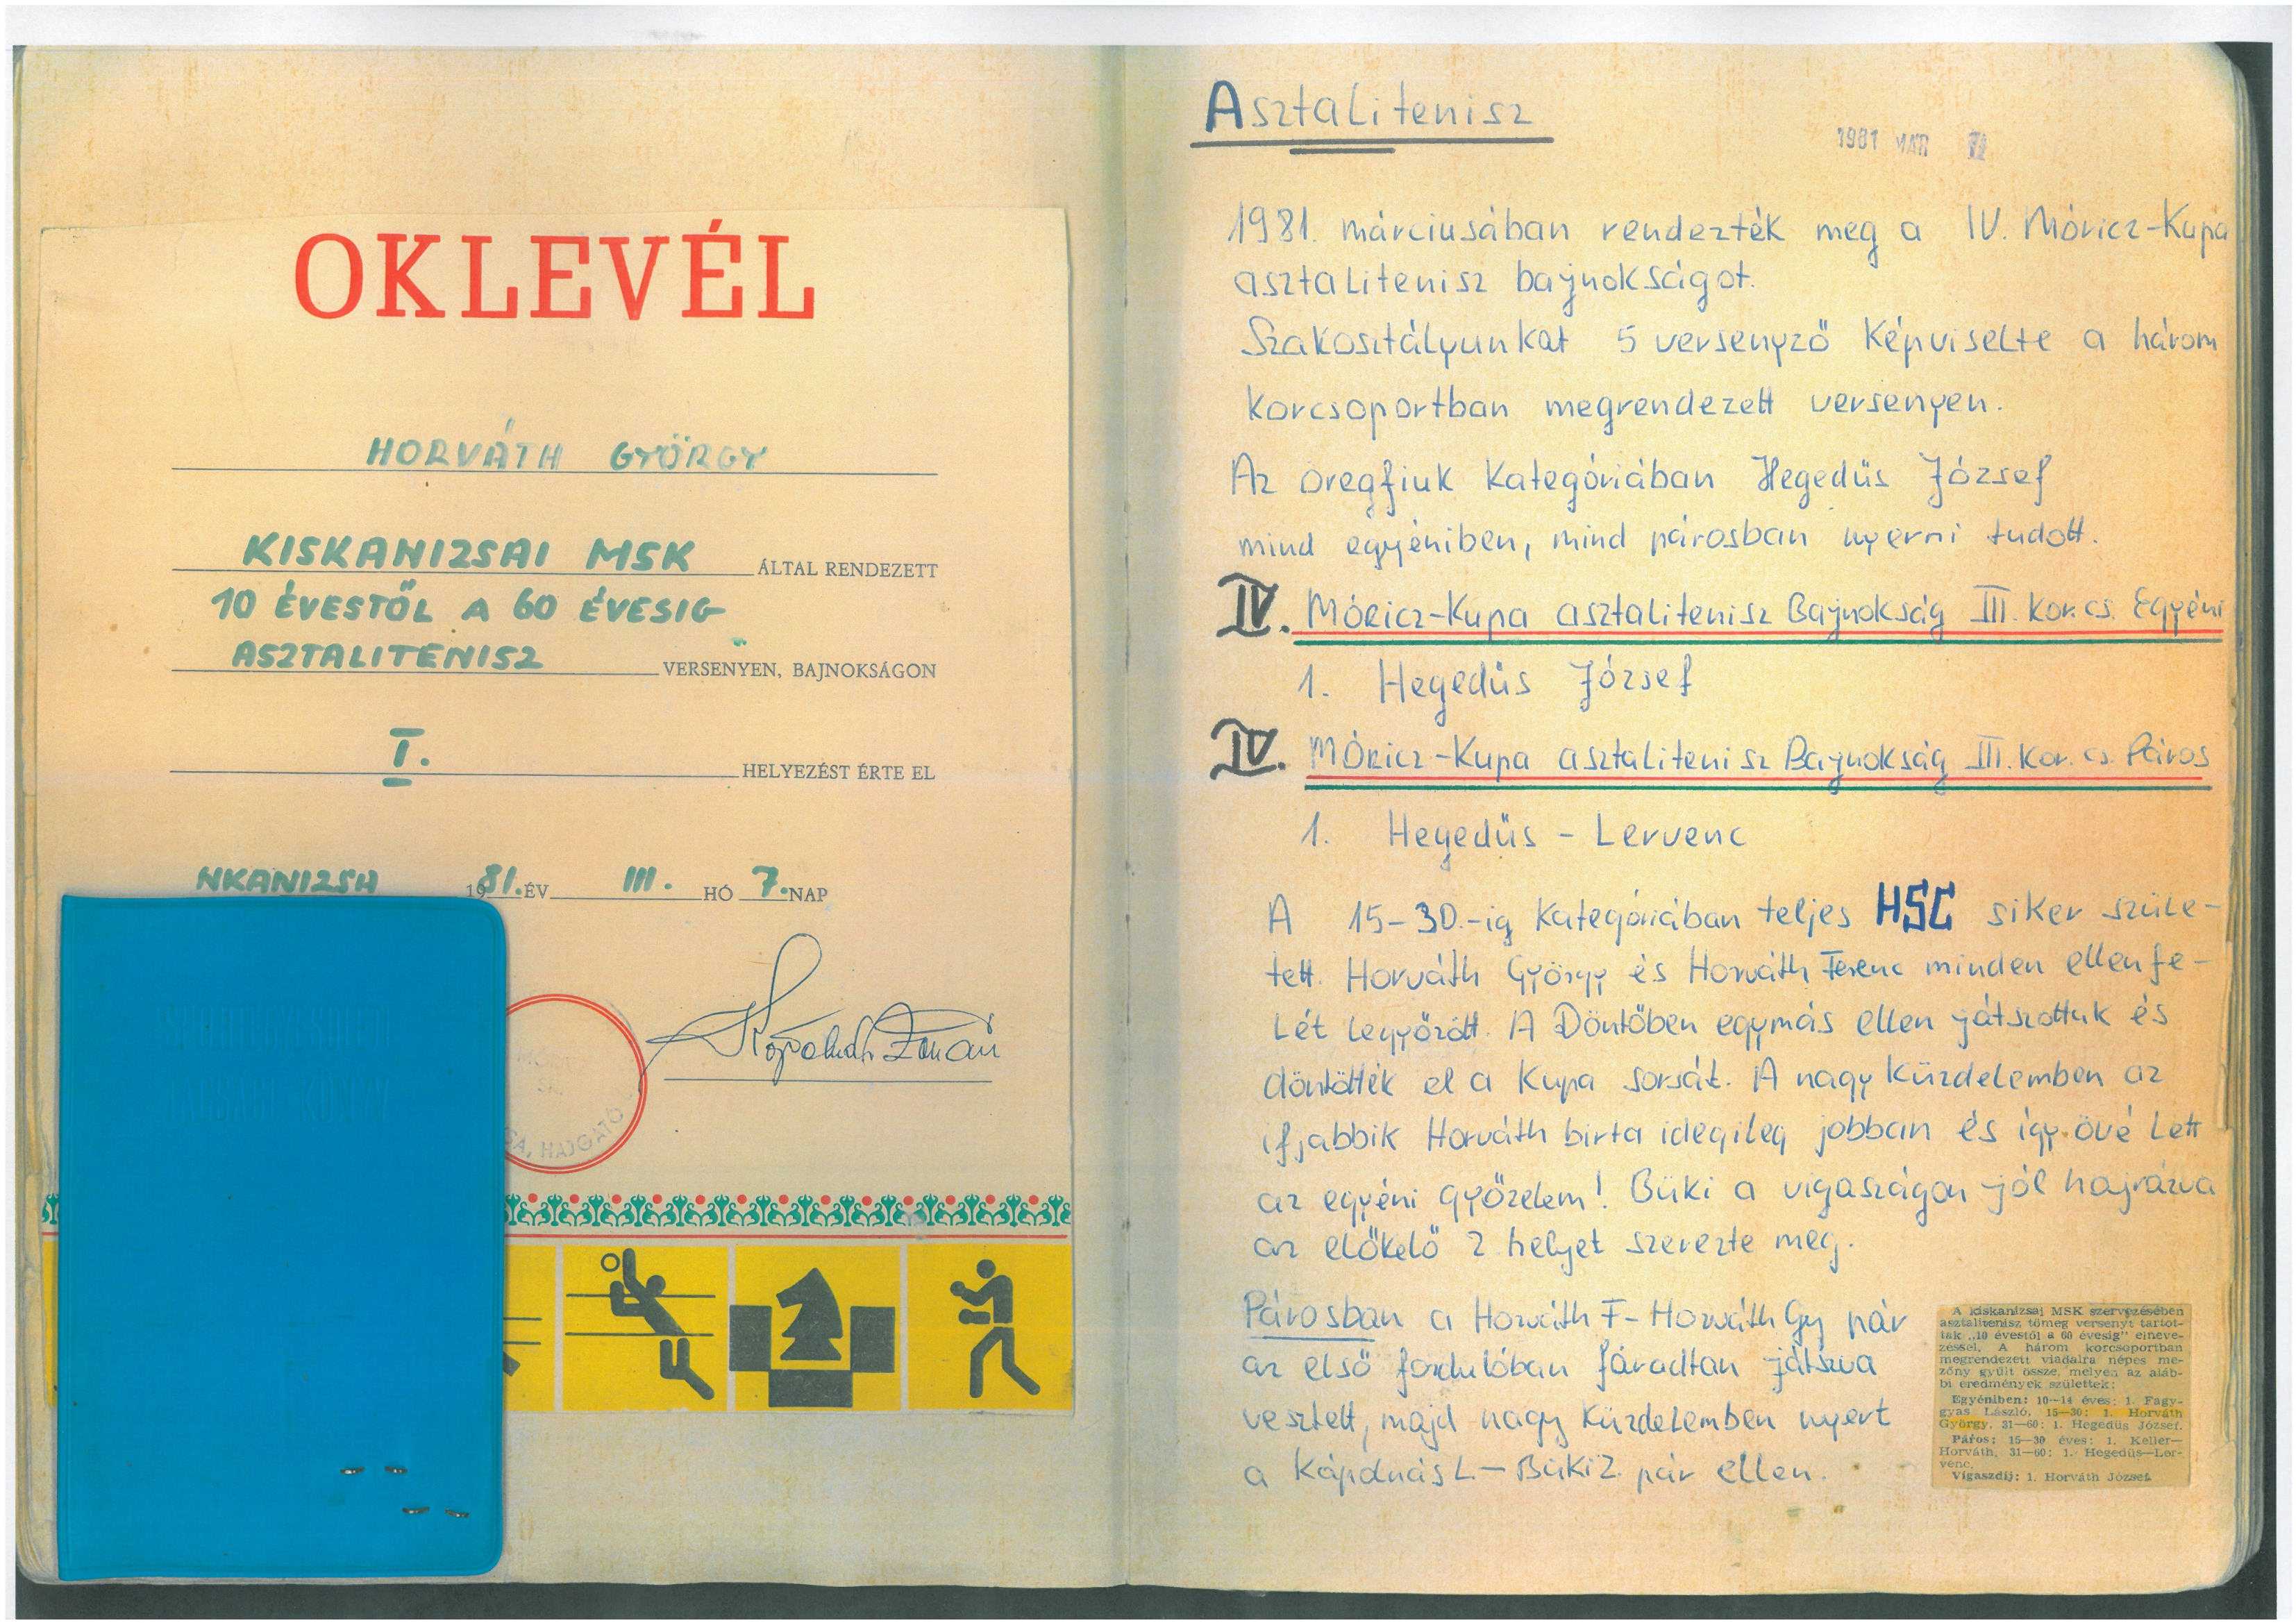 OKLEVÉL
HORVÁTH GYÖRGY
KISKANIZSAI MSK ÁLTAL RENDEZETT
10 ÉVESTŐL A 60 ÉVESIG
ASZTALITENISZ VERSENYEN, BAJNOKSÁGON
I. HELYEZÉST ÉRTE EL
NKANIZSA 1981. ÉV III. HÓ 7. NAP
Asztalitenisz
1981 MÁR
1981. márciusában rendezték meg a IV. Móricz-Kupa
asztalitenisz bajnokságot.
Szakosztályunkat 5 versenyző képviselte a három
korcsoportban megrendezett versenyen.
Az öregfiuk kategóriában Hegedüs József
mind egyéniben, mind párosban nyerni tudott.
IV. Móricz-Kupa asztalitenisz Bajnokság III. kor.cs. Egyéni
1. Hegedüs József
IV. Móricz-Kupa asztalitenisz Bajnokság III. kor. cs. Páros
1. Hegedüs - Lervenc
A 15-30.-ig kategóriában teljes HSC siker szüle-
tett. Horváth György és Horváth Ferenc minden ellenfe-
lét legyőzött. A Döntőben egymás ellen játszottak és
döntötték el a Kupa sorsát. A nagy küzdelemben az
ifjabbik Horváth birta idegileg jobban és így övé lett
az egyéni győzelem! Büki a vigaszágon jól hajrázva
az előkelő 2 helyet szerezte meg.
Párosban a Horváth F- Horváth Gy pár
az első fordulóban fáradtan játszva
vesztett, majd nagy küzdelemben nyert
a Kápolnás L - Büki Z. pár ellen.
A kiskanizsai MSK szervezésében
asztalitenisz tömeg versenyt tartot-
tak „10 évestől a 60 évesig" elneve-
zéssel. A három korcsoportban
megrendezett viadalra népes me-
zőny gyűlt össze, melyen az aláb-
bi eredmények születtek:
Egyéniben: 10—14 éves: 1. Fagy-
gyas László, 15—30: 1. Horváth
György, 31—60: 1. Hegedüs József.
Páros: 15—30 éves: 1. Keller—
Horváth, 31—60: 1. Hegedüs—Ler-
venc.
Vigaszdíj: 1. Horváth József.